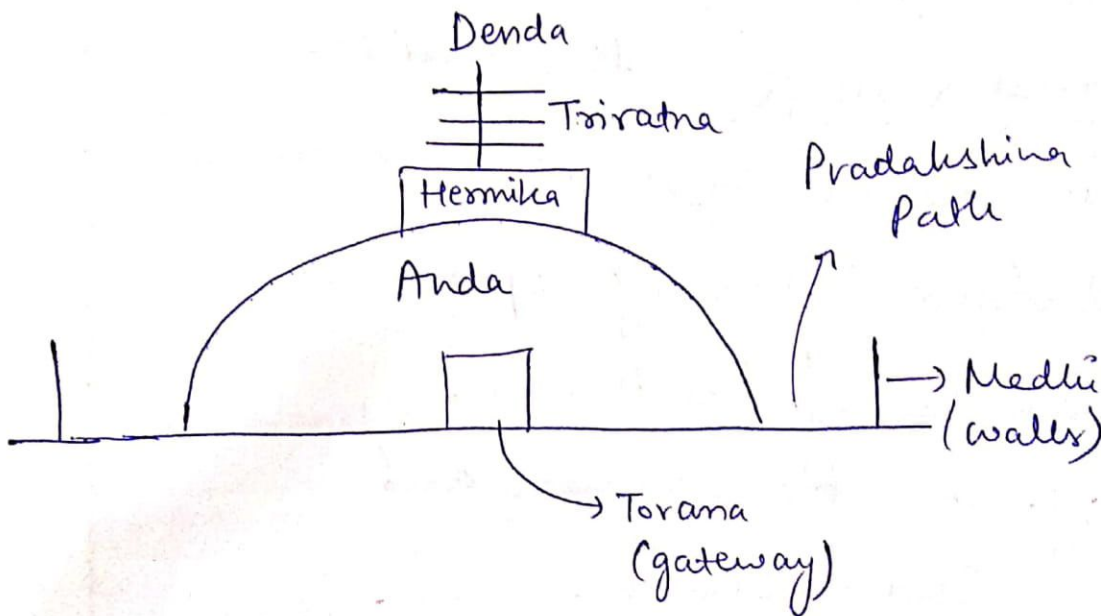 Denda
Triratna
Hermika
Anda
Pradakshina
Path
Medhi
(walls)
Torana
(gateway)